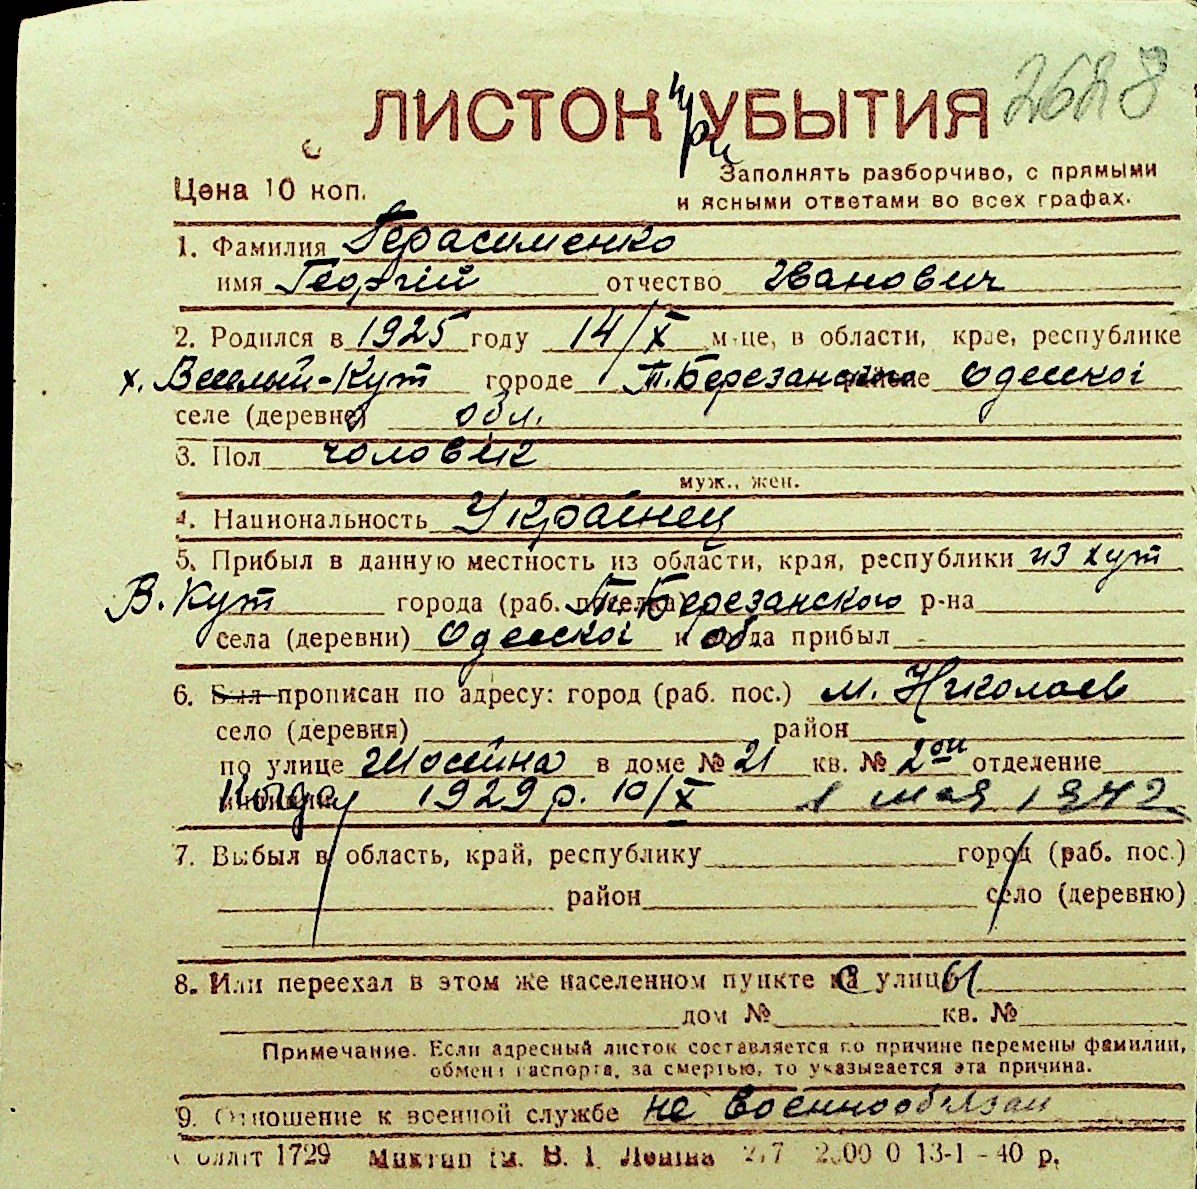 2628
ЛИСТОК при УБЫТИЯ
Цена 10 коп.
Заполнять разборчиво, с прямыми
и ясными ответами во всех графах.
1. Фамилия Герасименко
имя Георгій отчество Іванович
2. Родился в 1925 году 14/X м-це, в области, крае, республике
х. Веселый-Кут городе Т.Березанского районе Одеської
селе (деревне) обл.
3. Пол чоловік
муж., жен.
4. Национальность Украінец
5. Прибыл в данную местность из области, края, республики из хут
В. Кут города (раб. поселка) Т. Березанского р-на
села (деревни) Одеської и когда прибыл -
6. Был прописан по адресу: город (раб. пос.) м. Николаев
село (деревня) район
по улице в доме № 21 кв. № 2ой отделение
милиции Когда 1929 р. 10/X 1 мая 1942
7. Выбыл в область, край, республику город (раб. пос.)
район село (деревню)
8. Или переехал в этом же населенном пункте с улицы
дом № кв. №
Примечание. Если адресный листок составляется по причине перемены фамилии,
обмена паспорта, за смертью, то указывается эта причина.
9. Отношение к военной службе не военнообязан
Облліт 1729 Миктип ім. В. І. Леніна 13-1-40 р.